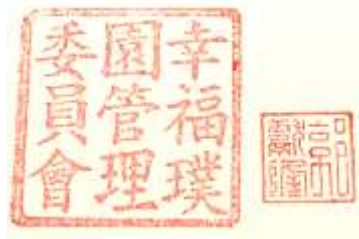 幸福璞
園管理
委員會